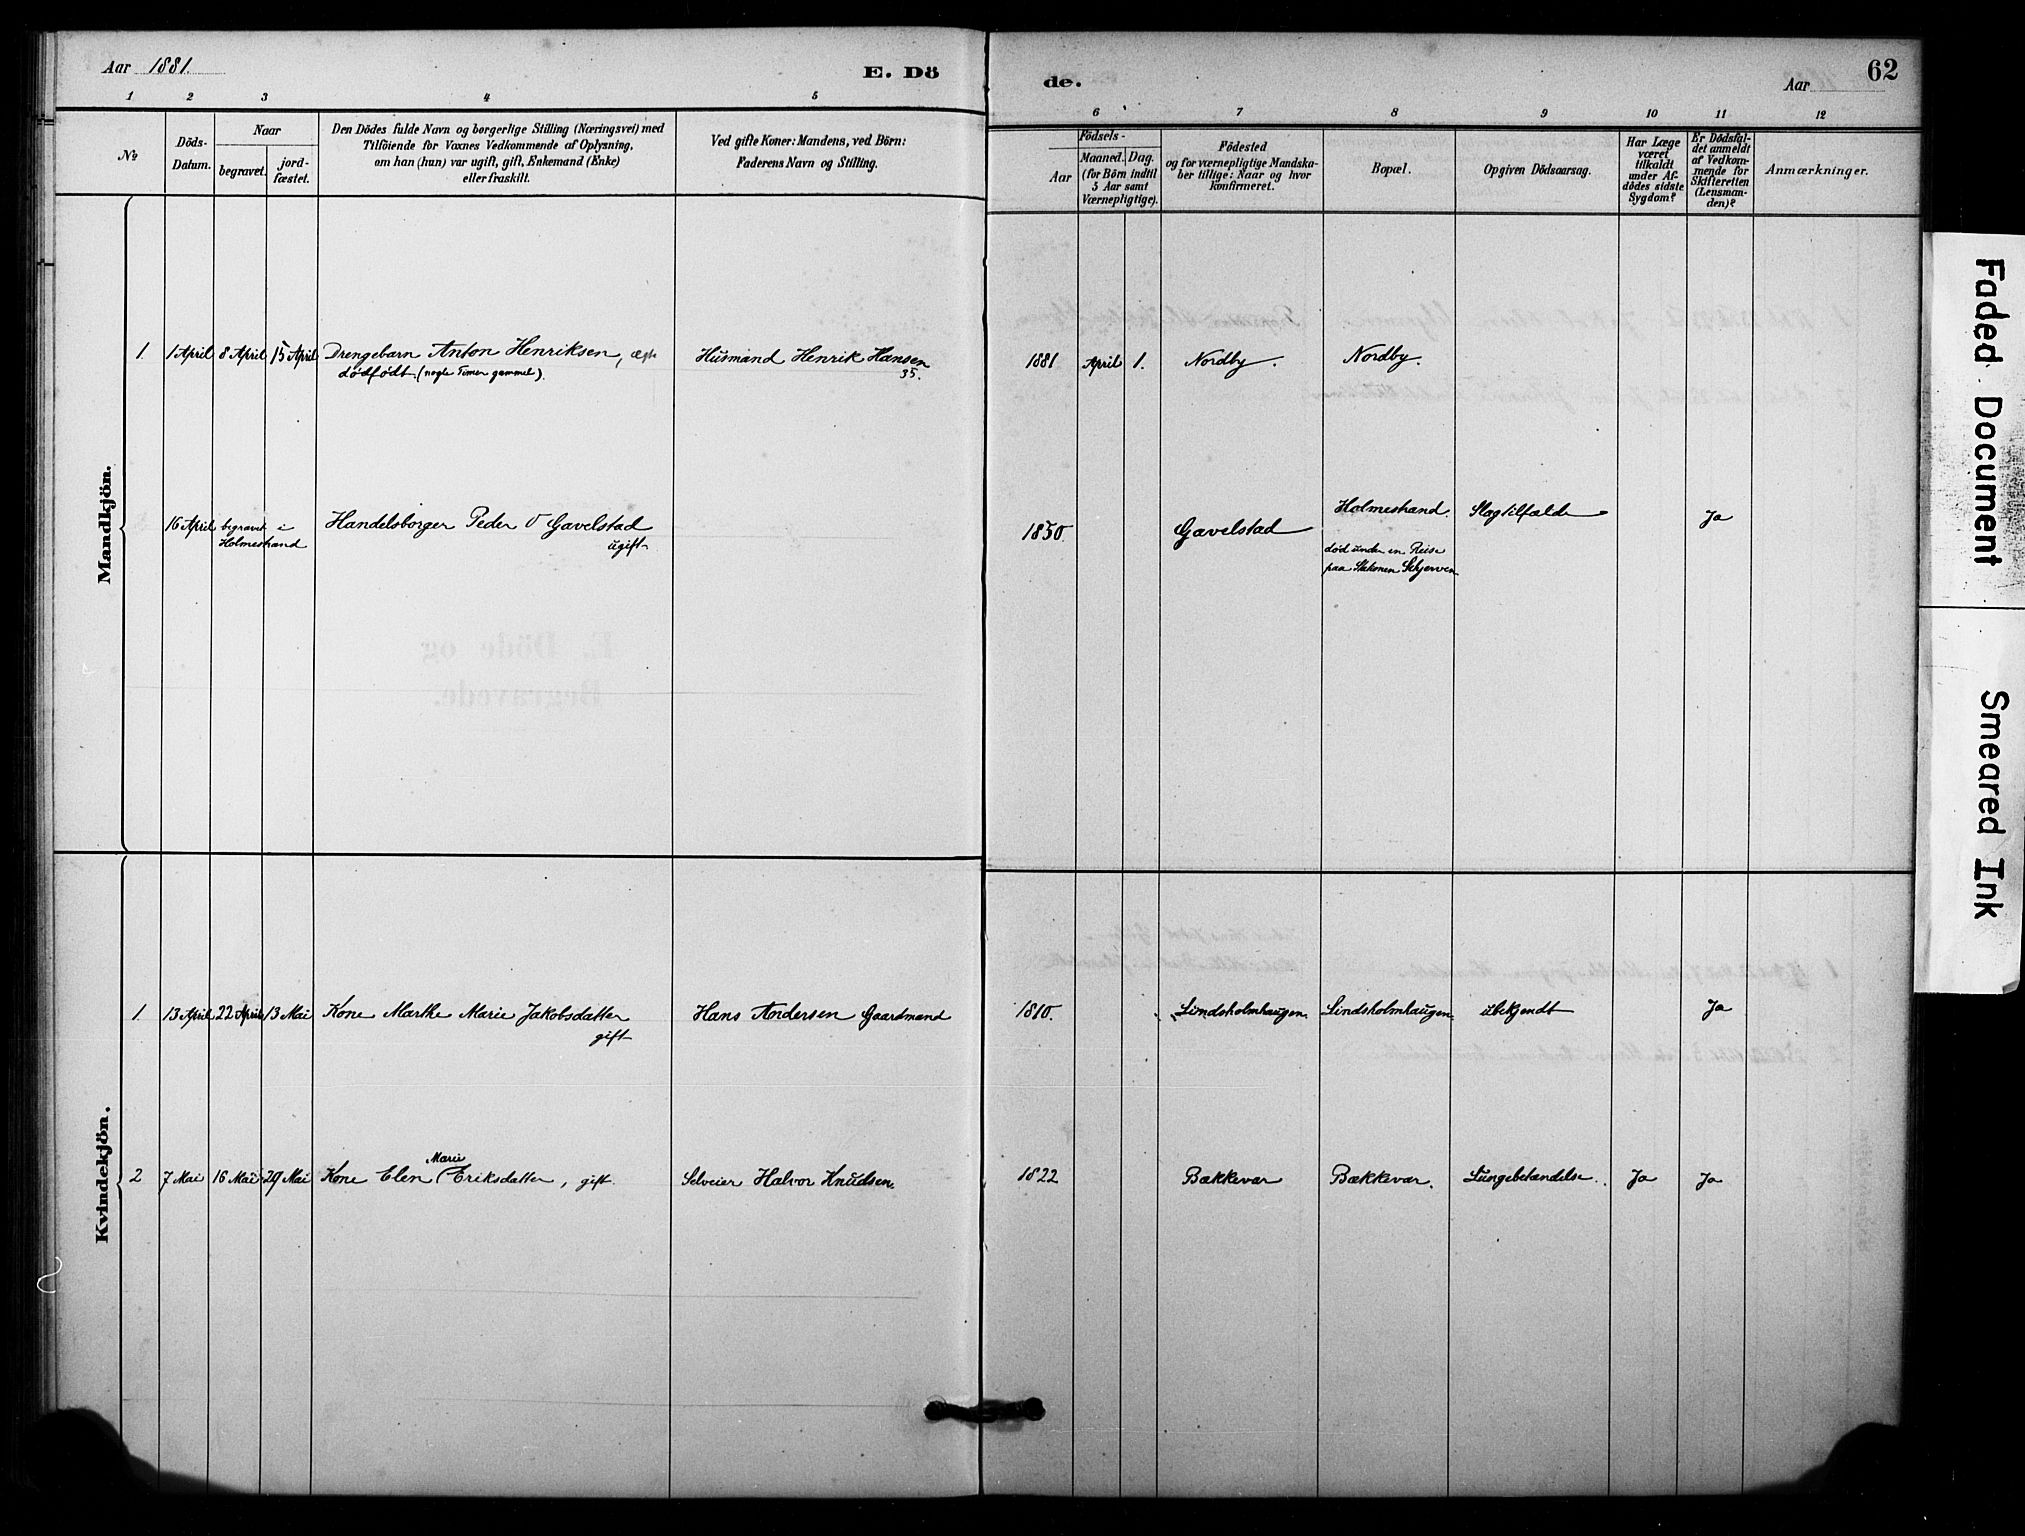 Aar 1881.
E. Dö
de.
Aar
62
1 2 3 4 5 6 7 8 9 10 11 12
No
Döds-
Datum.
Naar
begravet.
jord-
fæstet.
Den Dödes fulde Navn og borgerlige Stilling (Næringsvei) med
Tilföiende for Voxnes Vedkommende af Oplysning,
om han (hun) var ugift, gift, Enkemand (Enke)
eller fraskilt.
Ved gifte Koner: Mandens, ved Börn:
Faderens Navn og Stilling.
Födsels-
Aar
Maaned. Dag.
(for Börn indtil
5 Aar samt
Værnepligtige).
Födested
og for værnepligtige Mandska-
ber tillige: Naar og hvor
konfirmeret.
Bopæl.
Opgiven Dödsaarsag.
Har Læge
været
tilkaldt
under Af-
dödes sidste
Sygdom?
Er Dödsfal-
det anmeldt
af Vedkom-
mende for
Skifteretten
(Lensman-
den)?
Anmærkninger.
Mandkjön.
1. 1 April 8 April 15 April Drengebarn Anton Henriksen, ægte Husmand Henrik Hansen 1881 April 1. Nordby. Nordby.
dødfødt (nogle Timer gammel). 35.
16 April begravet i Handelsborger Peder O Gavelstad 1850. Gavelstad Holmestrand. Slagtilfælde Ja
Holmestrand ugift
død under en Reise
paa Stationen Skjerven
Kvindekjön.
1. 13 April 22 April 13 Mai Kone Marthe Marie Jakobsdatter Hans Andersen Gaardmand 1810. Lindsholmhaugen. Lindsholmhaugen. ubekjendt Ja
gift
Marie
2 7 Mai 16 Mai 29 Mai Kone Elen Eriksdatter, gift. Selveier Halvor Knudsen. 1822 Bækkevar Bækkevar. Lungebetændelse. Ja Ja
E. Döde og
Begravede.
Faded Document
Smeared Ink